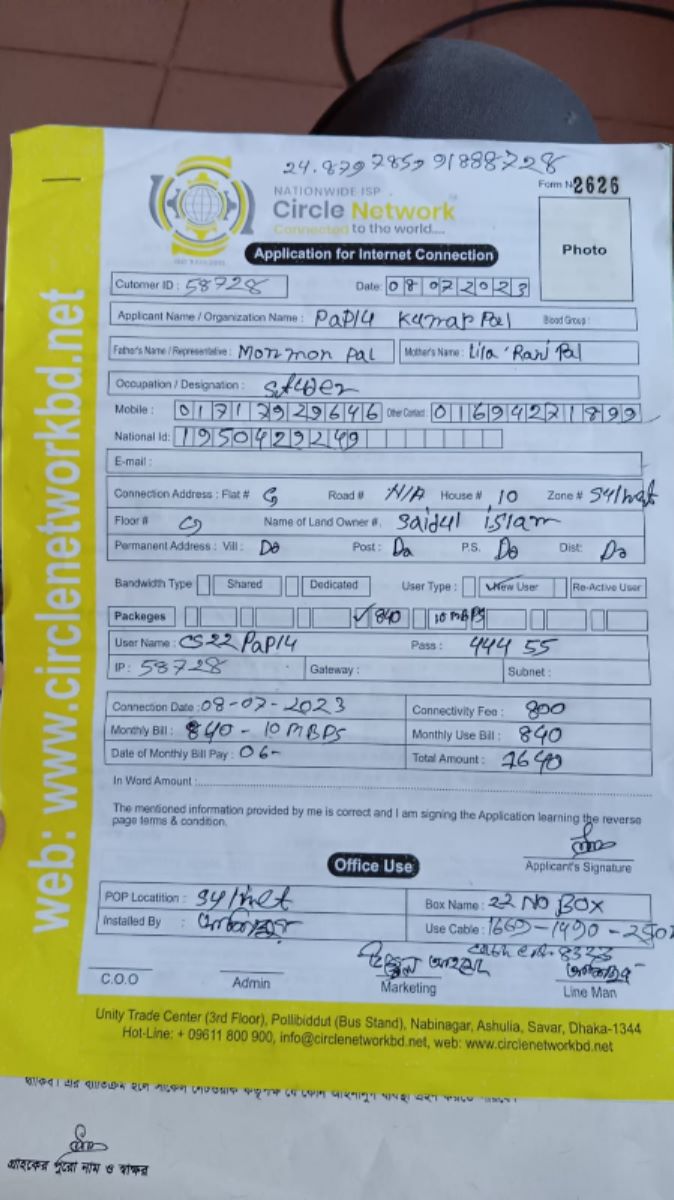 24.879785991888728
NATIONWIDE ISP
Form No 2626
Circle Network
Connected to the world....
Photo
Application for Internet Connection
Cutomer ID : 58728 Date: 08072023
Applicant Name / Organization Name : Paplu Kumar Pal Blood Group :
Father's Name / Representative : Monmon pal Mother's Name : Lila Rani Pal
Occupation / Designation :
Mobile : 01717929646 Other Contact : 01694271899
National Id: 1950429249
E-mail :
Connection Address : Flat # G Road # N/A House # 10 Zone #
Floor # G Name of Land Owner #. Saidul islam
Permanent Address : Vill : Do Post : Do P.S. Do Dist: Do
Bandwidth Type Shared Dedicated User Type : New User Re-Active User
Packeges 840 10 MBPS
User Name : CS22 Paplu Pass : 444 55
IP : 58728 Gateway : Subnet :
Connection Date : 08-07-2023 Connectivity Fee : 800
Monthly Bill : 840 - 10 MBPS Monthly Use Bill : 840
Date of Monthly Bill Pay : 06- Total Amount : 1640
In Word Amount :
The mentioned information provided by me is correct and I am signing the Application learning the reverse
page terms & condition.
Applicant's Signature
Office Use
POP Locatition : Box Name : 22 NO BOX
Installed By : Use Cable : 1669-1490-
C.O.O Admin Marketing Line Man
Unity Trade Center (3rd Floor), Pollibiddut (Bus Stand), Nabinagar, Ashulia, Savar, Dhaka-1344
Hot-Line: + 09611 800 900, info@circlenetworkbd.net, web: www.circlenetworkbd.net
web: www.circlenetworkbd.net
গ্রাহকের পুরো নাম ও স্বাক্ষর